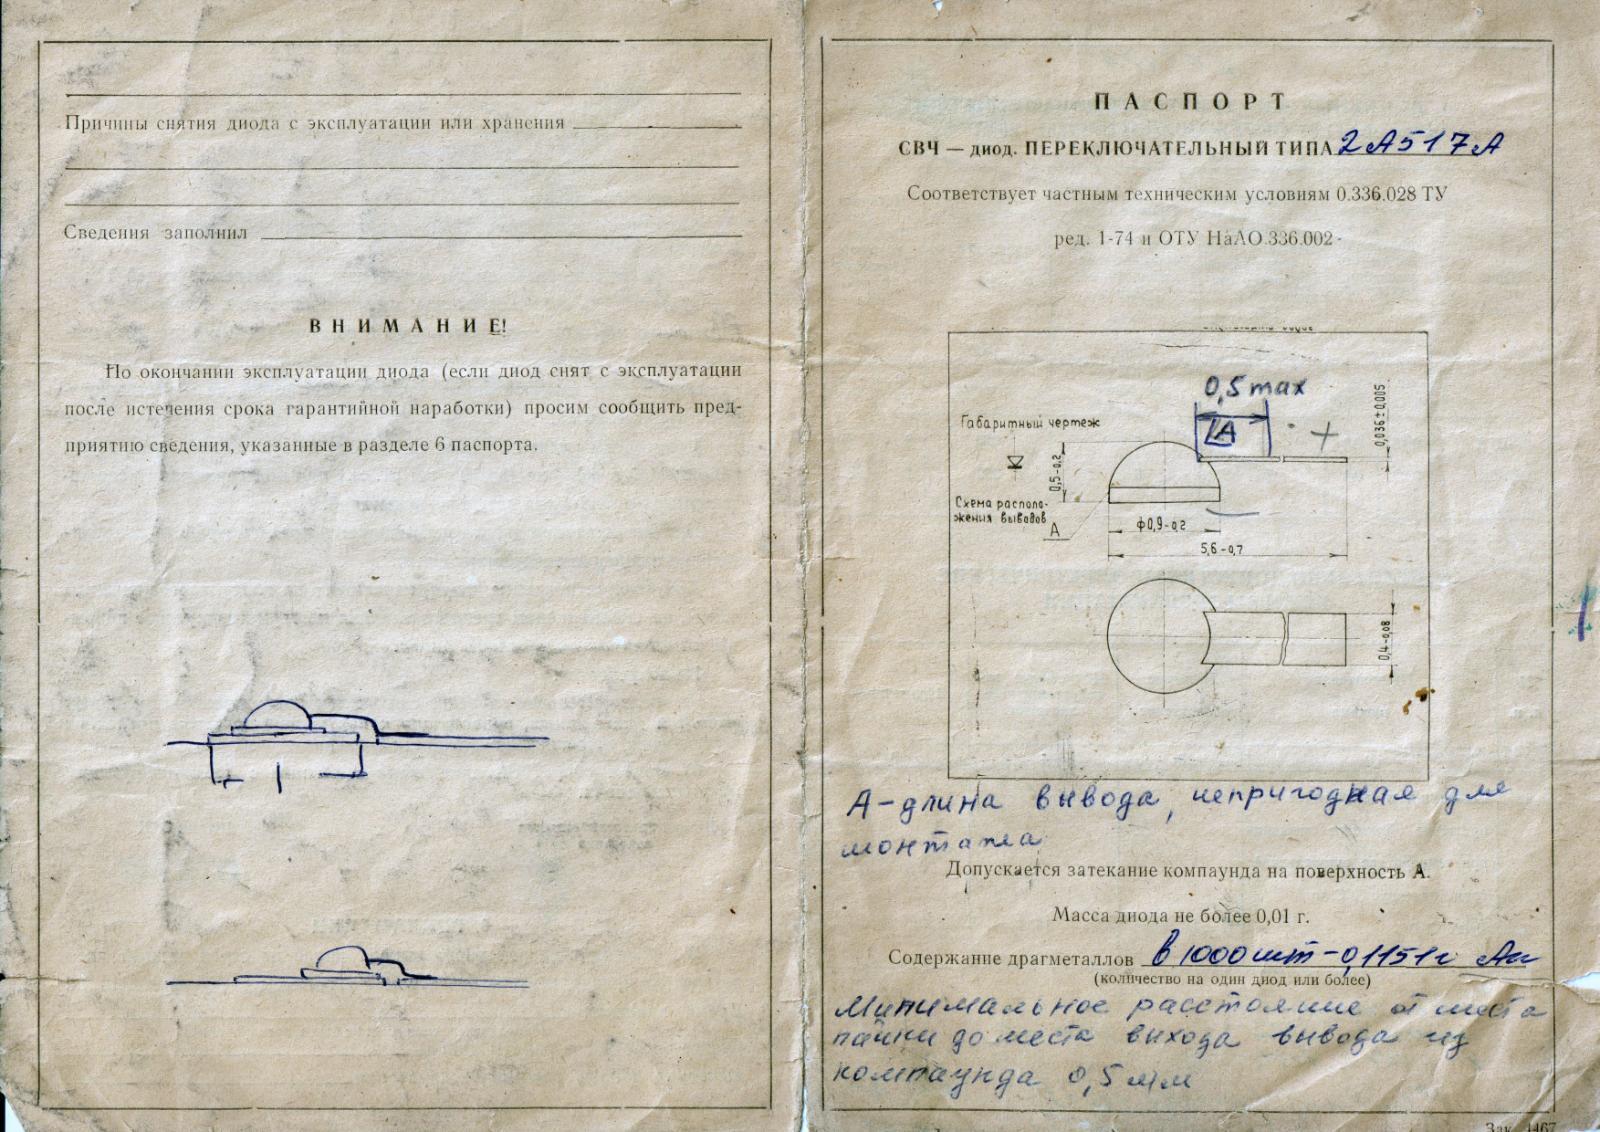 Причины снятия диода с эксплуатации или хранения
Сведения заполнил
ВНИМАНИЕ!
По окончании эксплуатации диода (если диод снят с эксплуатации
после истечения срока гарантийной наработки) просим сообщить пред-
приятию сведения, указанные в разделе 6 паспорта.
ПАСПОРТ
СВЧ — диод. ПЕРЕКЛЮЧАТЕЛЬНЫЙ ТИПА 2А517А
Соответствует частным техническим условиям 0.336.028 ТУ
ред. 1-74 и ОТУ НаАО.336.002
0,5 max
Габаритный чертеж
А
+
0,036±0,005
0,5-0,2
Схема располо-
жения выводов
А
ф0,9-0,2
5,6-0,7
0,4-0,08
А-длина вывода, непригодная для
монтажа
Допускается затекание компаунда на поверхность А.
Масса диода не более 0,01 г.
Содержание драгметаллов в 1000 шт-0,1151г Au
(количество на один диод или более)
Минимальное расстояние от места
пайки до места выхода вывода из
компаунда 0,5 мм
Зак. 4467